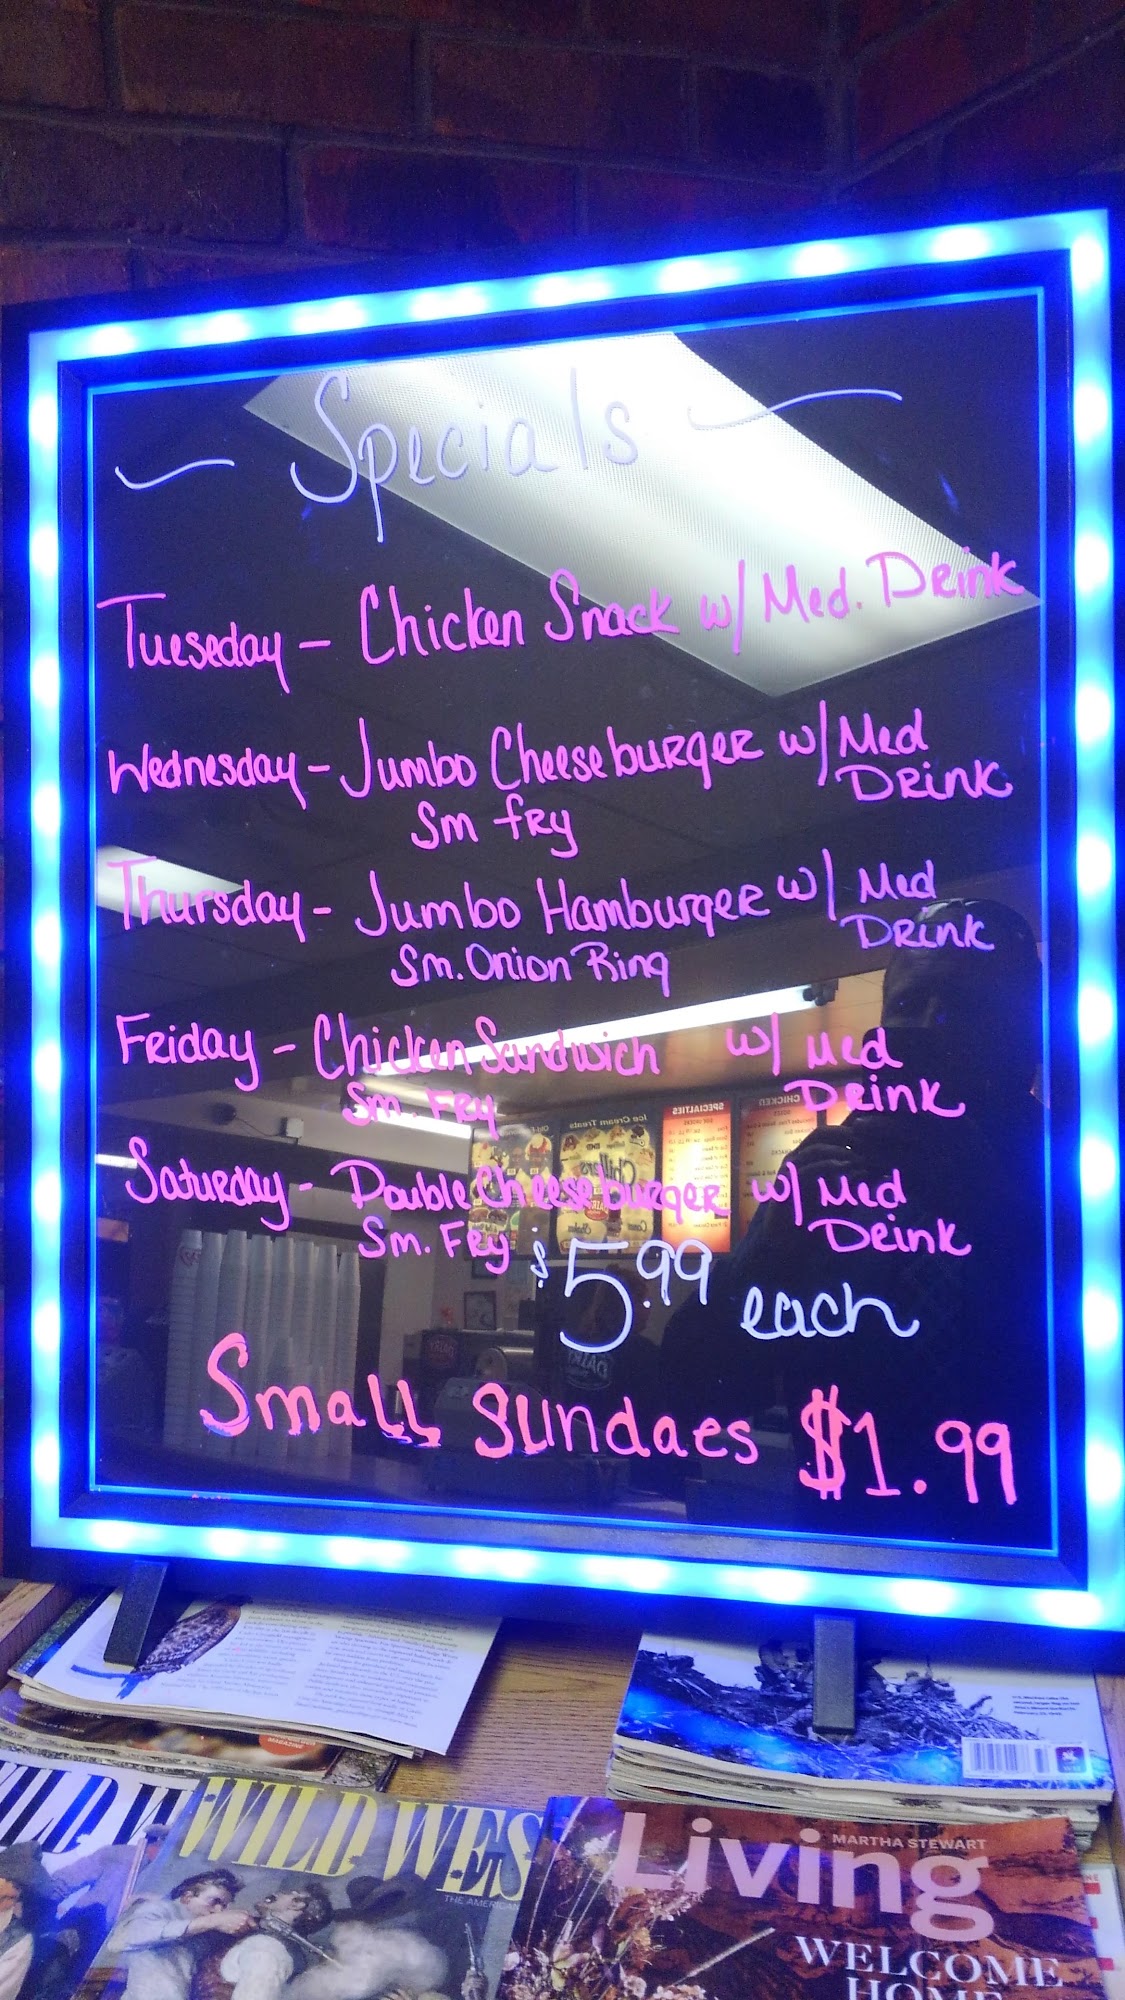 Specials
Tueseday - Chicken Snack w/ Med. Drink
Wednesday - Jumbo Cheeseburger w/ Med
Drink
Sm fry
Thursday - Jumbo Hamburger w/ Med
Drink
Sm. Onion Ring
Friday - Chicken Sandwich w/ Med
Sm. Fry Drink
Saturday - Double Cheeseburger w/ Med
Sm. Fry Drink
$5.99 each
Small Sundaes $1.99
MAGAZINE
WILD W
WILD WES
THE AMERICAN
MARTHA STEWART
Living
WELCOME
HOME